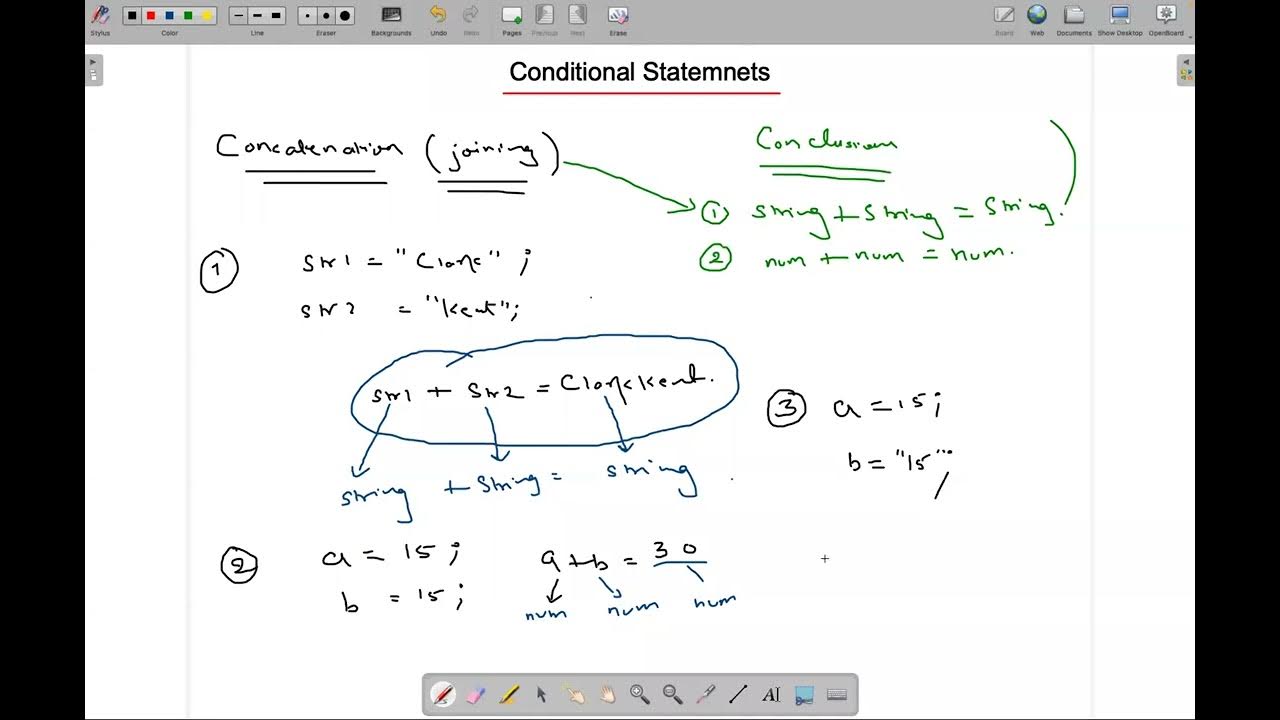 Stylus
Color
Line
Eraser
Backgrounds
Undo
Redo
Pages
Previous
Next
Erase
Board
Web
Documents
Show Desktop
OpenBoard
Conditional Statemnets
Concatenation (joining)
Conclusion
① string + string = string.
② num + num = num.
① str1 = "Clark" ;
str2 = "Kent";
str1 + str2 = ClarkKent.
string + string = string
③ a = 15;
b = "15";
② a = 15 ;
b = 15 ;
a + b = 30
num num num
AI